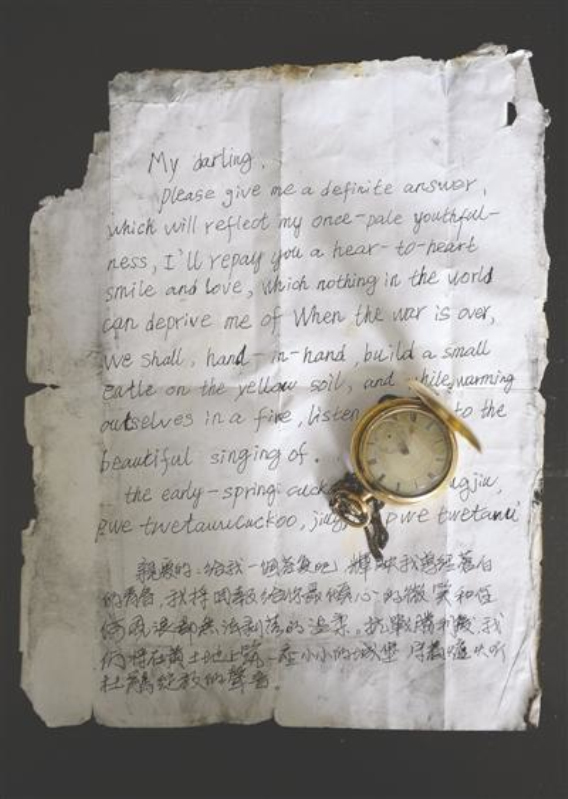 My darling,
please give me a definite answer,
which will reflect my once-pale youthful-
ness, I'll repay you a hear-to-heart
smile and love, which nothing in the world
can deprive me of When the war is over,
we shall, hand-in-hand, build a small
catle on the yellow soil, and while, warming
outselves in a fire, listen to the
beautiful singing of.
the early-spring cuck ugjiu,
cuckoo,
親愛的:給我一個答復吧,輝映我曾經蒼白
的青春,我將回報給你最傾心的微笑和任
何風浪都無法剥落的溫柔,抗戰勝利後,我
們將在黃土地上築一座小小的城堡 圍着爐火听
杜鵑綻放的聲音.